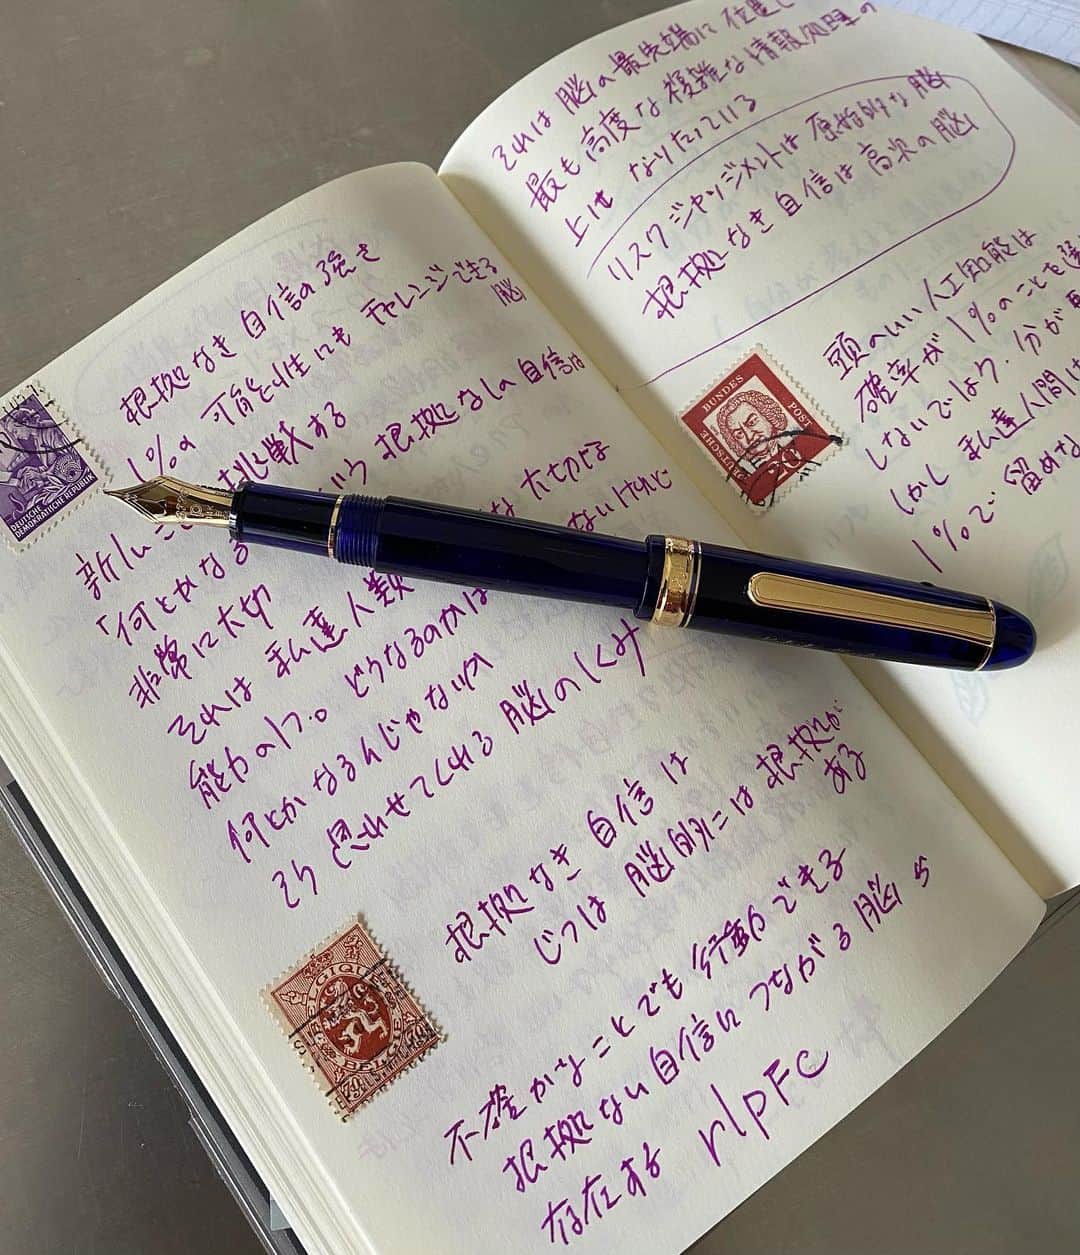 根拠なき自信の強さ
1%の可能性にもチャレンジできる
脳
新しいこ 挑戦する
「何とかなる いう根拠なしの自信は
非常に大切 な大切な
それは私達人類 ないけれど
能力の1つ。どうなるのかは
何とかなるんじゃないか
そう思わせてくれる脳のしくみ
根拠なき自信は
じつは脳的には根拠が
ある
不確かなことでも行動できる
根拠ない自信につながる脳ら
存在する rlpFc
それは脳の最先端に位置し
最も高度な複雑な情報処理の
上になりたっている
リスクジャッジメントは原始的な脳
根拠なき自信は高次の脳
頭のいい人工知能は
確率が1%のことを選
しないでしょう。分が
しかし私達人間は
1%で留めな
DEUTSCHE
DEMOKRATISCHE REPUBLIK
DEUTSCHE
BUNDES
POST
BELGIQUE
BELGIE